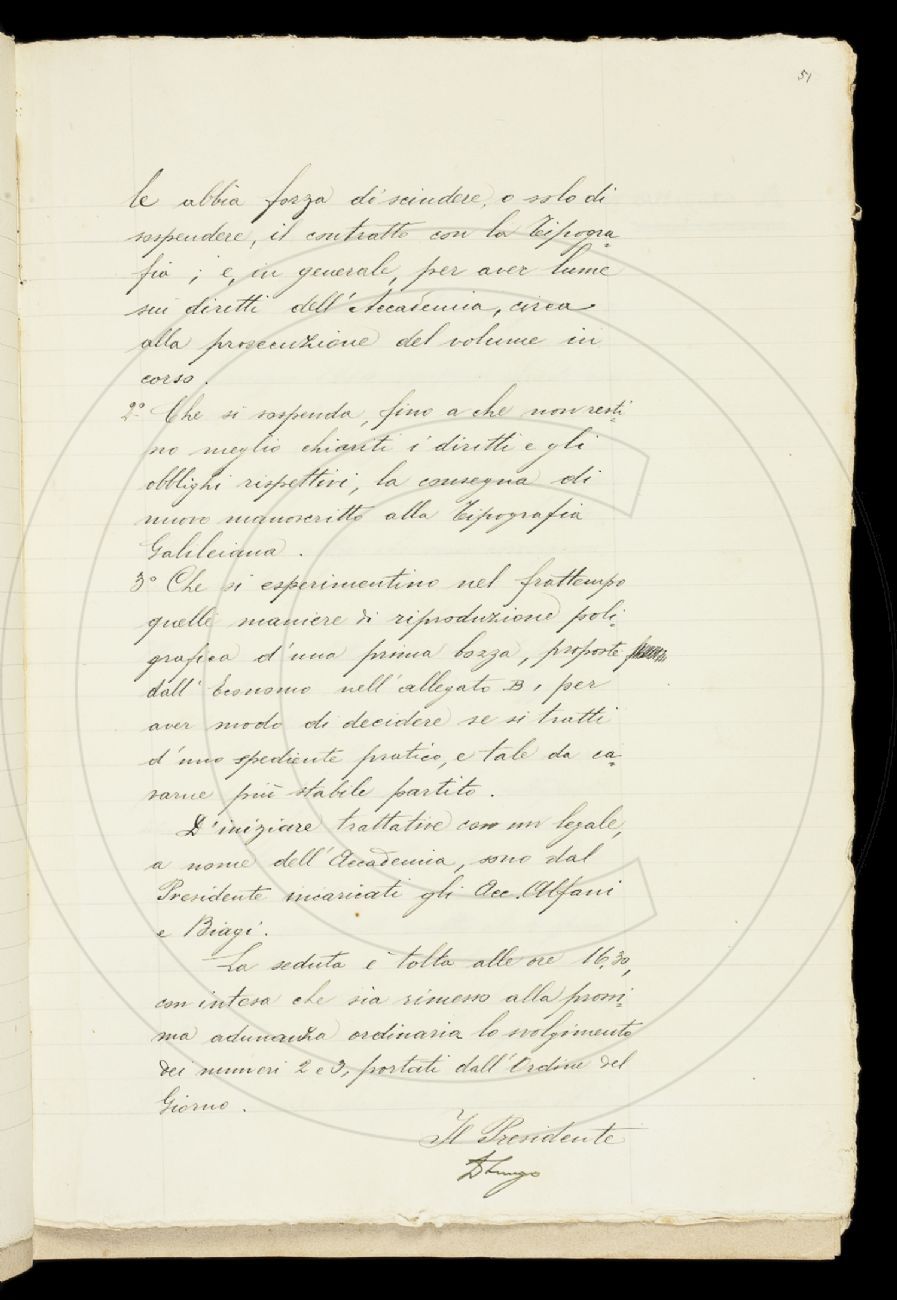 51
le abbia forza di scindere, o solo di
sospendere, il contratto con la Tipogra-
fia ; e, in generale, per aver lume
sui diritti dell'Accademia, circa
alla prosecuzione del volume in
corso.
2º Che si sospenda, fino a che non resti-
no meglio chiariti i diritti e gli
obblighi rispettivi, la consegna di
nuovo manoscritto alla Tipografia
Galileiana.
3º Che si esperimentino nel frattempo
quelle maniere di riproduzione poli-
grafica d'una prima bozza, proposte
dall'Economo nell'allegato B, per
aver modo di decidere se si tratti
d'uno spediente pratico, e tale da ca-
varne più stabile partito.
D'iniziare trattative con un legale,
a nome dell'Accademia, sono dal
Presidente incaricati gli Acc. Alfani
e Biagi.
La seduta è tolta alle ore 16,30,
con intesa che sia rimesso alla prossi-
ma adunanza ordinaria lo svolgimento
dei numeri 2 e 3, portati dall'Ordine del
Giorno.
Il Presidente